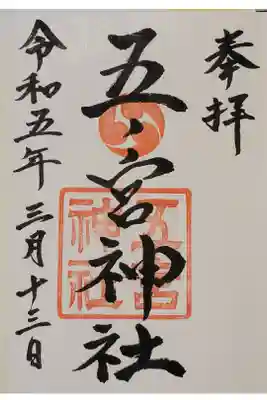 奉拝
五宮神社
令和五年三月十三日
五宮
神社